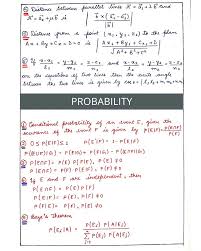 ⑤ Distance between parallel lines r⃗ = a⃗₁ + λb⃗ and
r⃗ = a⃗₂ + μb⃗ is
| b⃗ × (a⃗₂ - a⃗₁) / |b⃗| |
⑥ Distance from a point (x₁, y₁, z₁) to the plane
Ax + By + Cz + D = 0 is | Ax₁ + By₁ + Cz₁ + D / √A² + B² + C² |
are the equations of two lines, then the acute angle
between the two lines is given by cos θ = | l₁l₂ + m₁m₂ + n₁n₂ |
PROBABILITY
① Conditional probability of an event E, given the
occurrence of the event F is given by P(E|F) = P(E∩F) / P(F)
② 0 ≤ P(E|F) ≤ 1
P(E∩F) = P(E) P(F|E), P(E) ≠ 0
P(E∩F) = P(F) P(E|F), P(F) ≠ 0
If E and F are independent, then
P(E∩F) = P(E) P(F)
P(E|F) = P(E), P(F) ≠ 0
P(F|E) = P(F), P(E) ≠ 0
Baye's Theorem